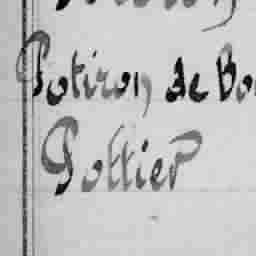 Potiron de Bo
Pottier